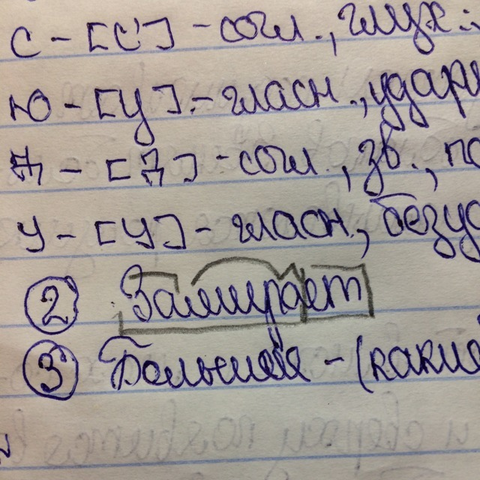 с - [с'] - согл., глух.
ю - [у] - гласн., ударн
д - [д] - согл., зв., по
у - [у] - гласн., безуд
② Замирает
③ Большие - (какие